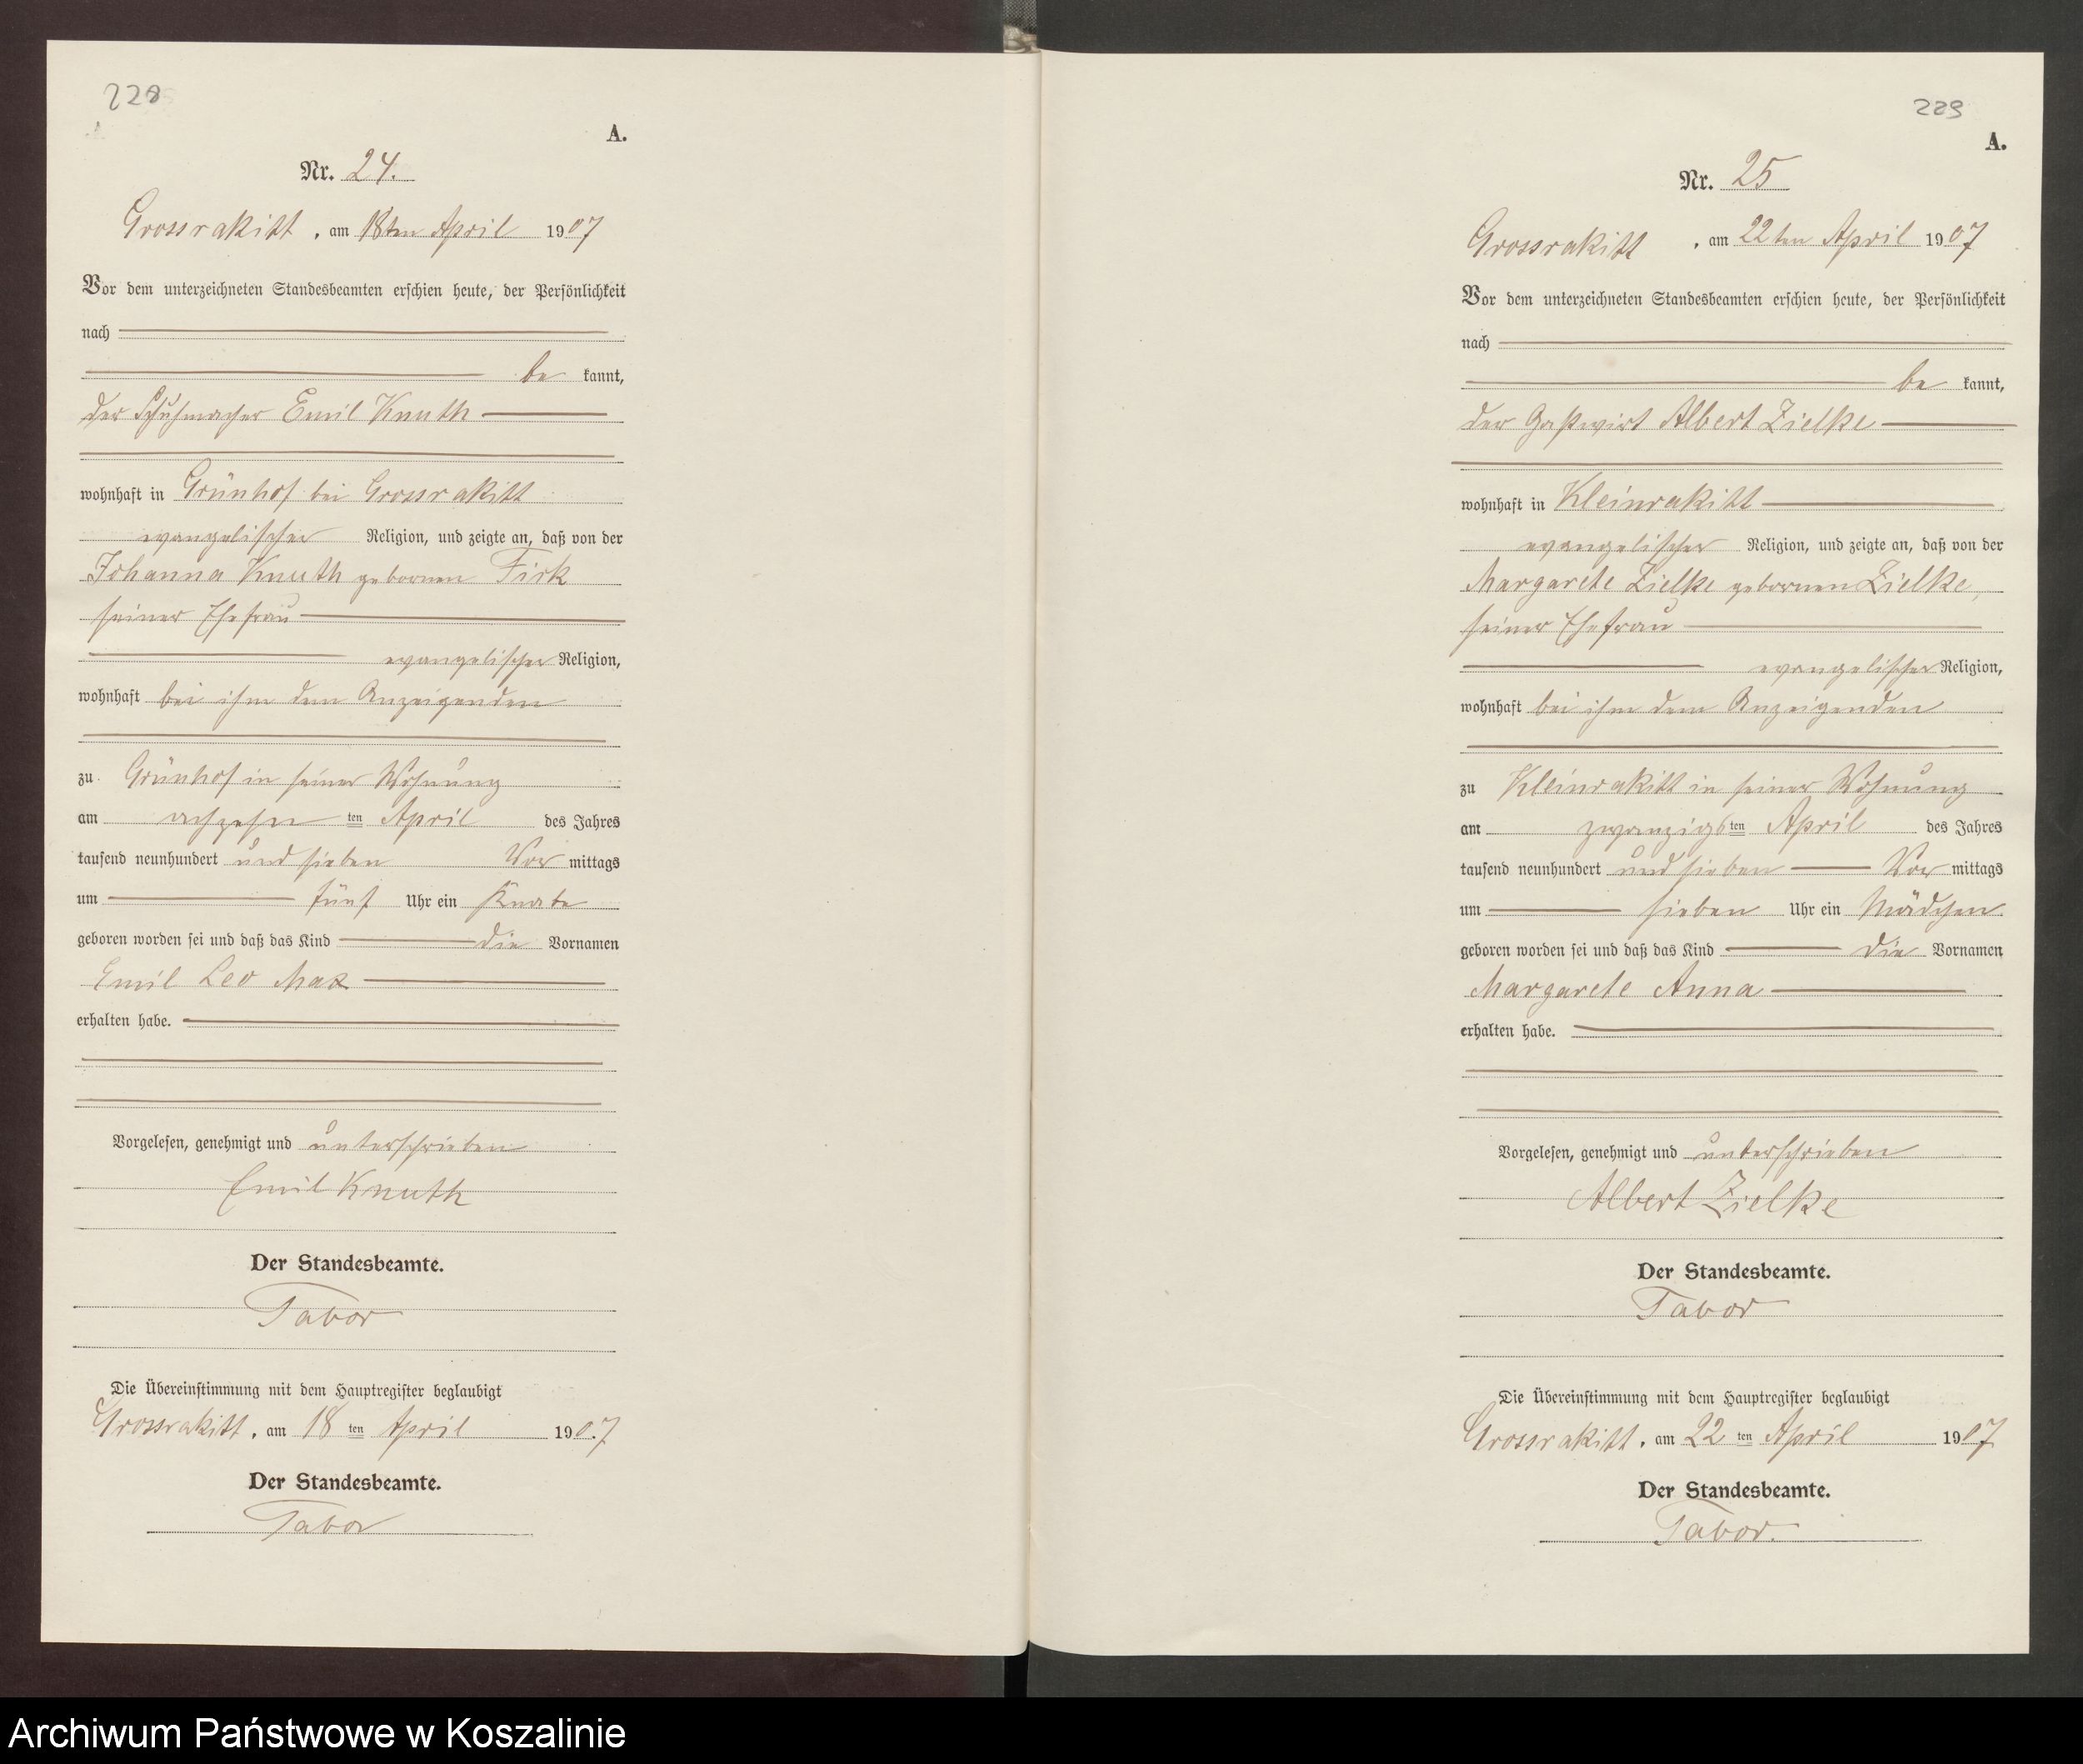 228
A.
Nr. 24.
Grossrakitt, am 18ten April 1907
Vor dem unterzeichneten Standesbeamten erschien heute, der Persönlichkeit
nach
be kannt,
der Schuhmacher Emil Knuth
wohnhaft in Grünhof bei Grossrakitt
evangelischer Religion, und zeigte an, daß von der
Johanna Knuth gebornen Firk
seiner Ehefrau
evangelischer Religion,
wohnhaft bei ihm dem Anzeigenden
zu Grünhof in seiner Wohnung
am achzehn ten April des Jahres
tausend neunhundert und sieben Vor mittags
um fünf Uhr ein Knabe
geboren worden sei und daß das Kind die Vornamen
Emil Leo Max
erhalten habe.
Vorgelesen, genehmigt und unterschrieben
Emil Knuth
Der Standesbeamte.
Tabor
Die Übereinstimmung mit dem Hauptregister beglaubigt
Grossrakitt, am 18 ten April 1907
Der Standesbeamte.
Tabor
229
A.
Nr. 25
Grossrakitt, am 22ten April 1907
Vor dem unterzeichneten Standesbeamten erschien heute, der Persönlichkeit
nach
be kannt,
der Gastwirt Albert Zielke
wohnhaft in Kleinrakitt
evangelischer Religion, und zeigte an, daß von der
Margarete Zielke gebornen Zielke,
seiner Ehefrau
evangelischer Religion,
wohnhaft bei ihm dem Anzeigenden
zu Kleinrakitt in seiner Wohnung
am zwanzigs ten April des Jahres
tausend neunhundert und sieben Vor mittags
um sieben Uhr ein Mädchen
geboren worden sei und daß das Kind die Vornamen
Margarete Anna
erhalten habe.
Vorgelesen, genehmigt und unterschrieben
Albert Zielke
Der Standesbeamte.
Tabor
Die Übereinstimmung mit dem Hauptregister beglaubigt
Grossrakitt, am 22 ten April 1907
Der Standesbeamte.
Tabor.
Archiwum Państwowe w Koszalinie